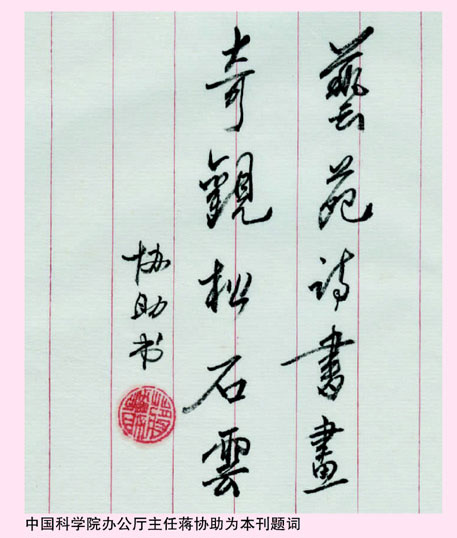 藝苑詩書畫
奇觀松石雲
协助书
中国科学院办公厅主任蒋协助为本刊题词